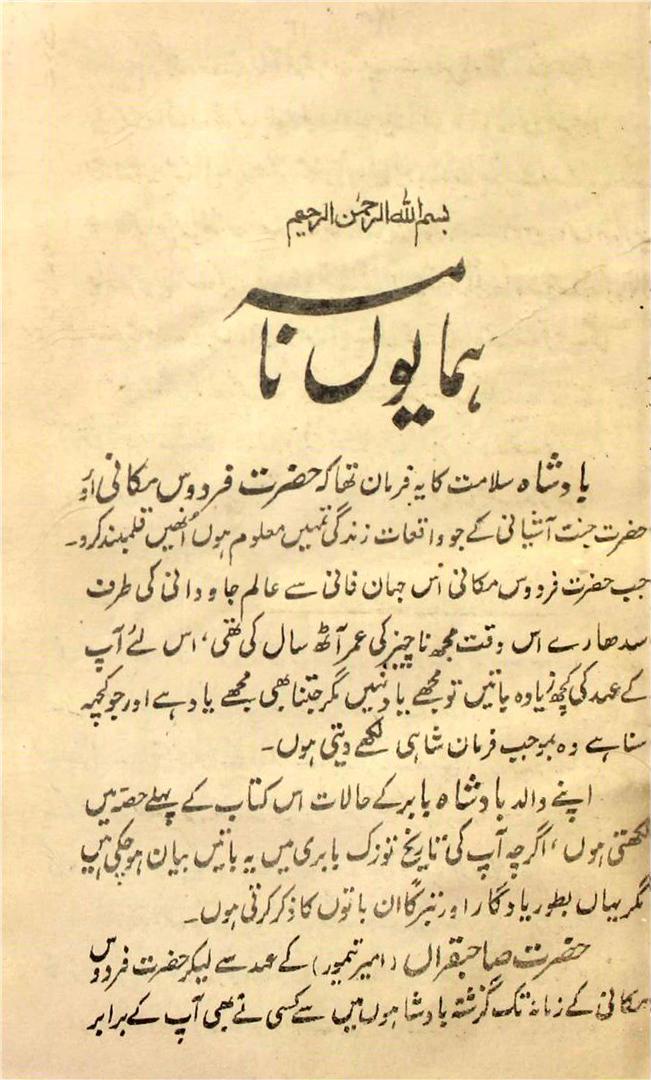 بسم اللہ الرحمٰن الرحیم
ہمایوں نامہ
بادشاہ سلامت کا یہ فرمان تھا کہ حضرت فردوس مکانی اور
حضرت جنت آشیانی کے جو واقعات زندگی تمہیں معلوم ہوں اُنھیں قلمبند کرو۔
جب حضرت فردوس مکانی اس جہان فانی سے عالم جاودانی کی طرف
سدھارے اس وقت مجھ ناچیز کی عمر آٹھ سال کی تھی، اس لئے آپ
کے عہد کی کچھ زیادہ باتیں تو مجھے یاد نہیں مگر جتنا بھی مجھے یاد ہے اور جو کچھ
سنا ہے وہ بموجب فرمان شاہی لکھے دیتی ہوں۔
اپنے والد بادشاہ بابر کے حالات اس کتاب کے پہلے حصہ میں
لکھتی ہوں، اگرچہ آپ کی تاریخ توزک بابری میں یہ باتیں بیان ہو چکی ہیں
مگر یہاں بطور یادگار اور تبرکاً ان باتوں کا ذکر کرتی ہوں۔
حضرت صاحبقراں (امیر تیمور) کے عہد سے لیکر حضرت فردوس
مکانی کے زمانہ تک گزشتہ بادشاہوں میں سے کسی نے بھی آپ کے برابر